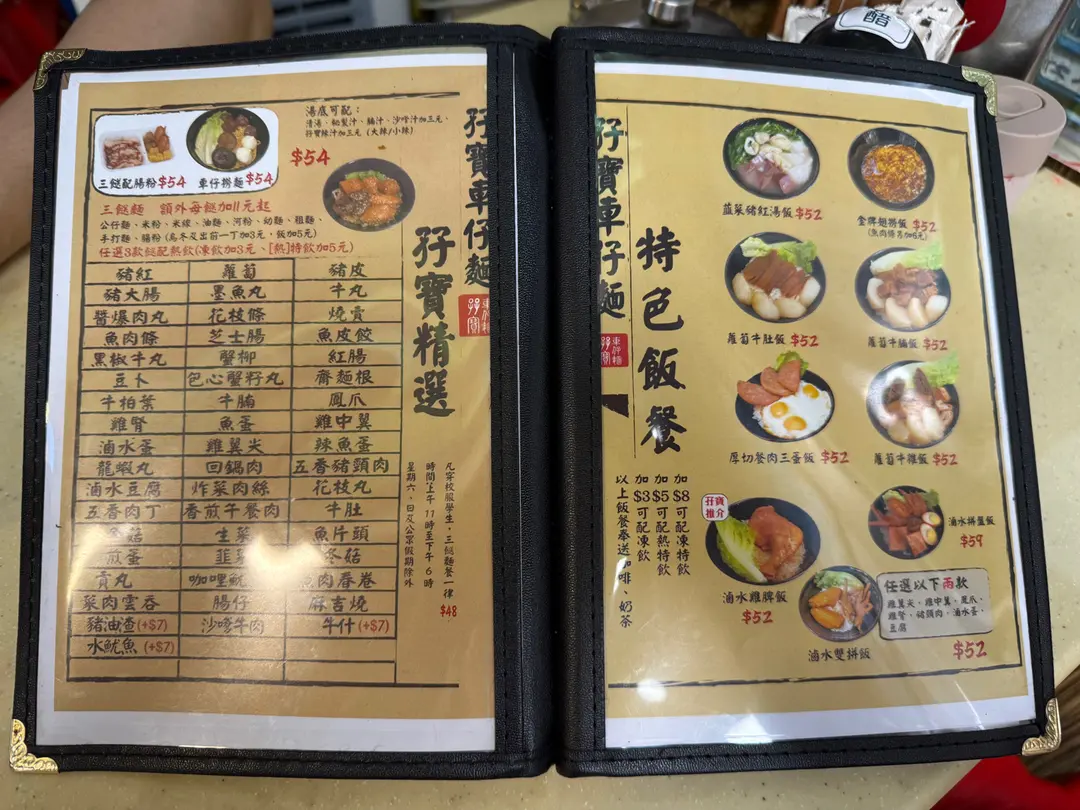 醋
湯底可配：
清湯、秘製汁、腩汁、沙嗲汁加三元、
孖寶辣汁加三元 (大辣/小辣)
三餸配腸粉$54
車仔撈麵$54
$54
三餸麵 額外每餸加11元起
公仔麵、米粉、米線、油麵、河粉、幼麵、粗麵、
手打麵、腸粉(烏冬及出前一丁加3元、飯加5元)
任選3款餸配熱飲(凍飲加3元、[熱]特飲加5元)
豬紅 蘿蔔 豬皮
豬大腸 墨魚丸 牛丸
醬爆肉丸 花枝條 燒賣
魚肉條 芝士腸 魚皮餃
黑椒牛丸 蟹柳 紅腸
豆卜 包心蟹籽丸 齋麵根
牛柏葉 牛腩 鳳爪
雞腎 魚蛋 雞中翼
滷水蛋 雞翼尖 辣魚蛋
龍蝦丸 回鍋肉 五香豬頸肉
滷水豆腐 炸菜肉絲 花枝丸
五香肉丁 香煎午餐肉 牛肚
菇 生菜 魚片頭
煎蛋 韭菜 冬菇
貢丸 咖哩魷 魚肉春卷
菜肉雲吞 腸仔 麻吉燒
豬油渣(+$7) 沙嗲牛肉 牛什(+$7)
水魷魚(+$7)
孖寶車仔麵
孖寶
車仔麵
孖寶精選
凡穿校服學生，三餸麵餐一律$48
時間上午11時至下午6時
星期六、日及公眾假期除外
孖寶車仔麵
孖寶
車仔麵
特色飯餐
加$8可配凍特飲
加$5可配熱特飲
加$3可配凍飲
以上飯餐奉送咖啡、奶茶
韮菜豬紅湯飯$52
金牌翅撈飯$52
蘿蔔牛肚飯$52
蘿蔔牛腩飯$52
厚切餐肉三蛋飯$52
蘿蔔牛雜飯$52
孖寶
推介
滷水雞髀飯
$52
滷水拼盤飯
$59
滷水雙拼飯
任選以下兩款
雞翼尖、雞中翼、鳳爪、
雞腎、豬頸肉、滷水蛋、
豆腐
$52